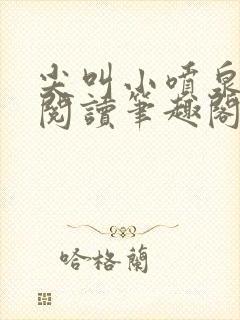 尖叫小噴泉
閱讀筆趣閣
哈格蘭